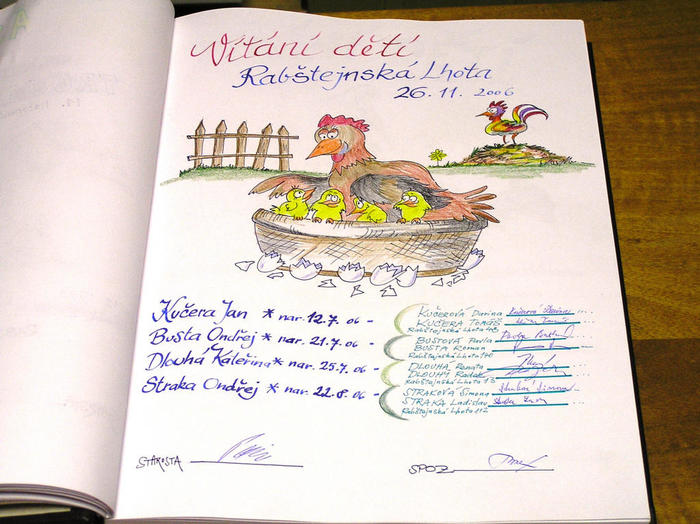 Vítání dětí
Rabštejnská Lhota
26. 11. 2006
Kučera Jan * nar. 12.7. 06 -
Bušta Ondřej * nar. 21.7. 06 -
Dlouhá Kateřina * nar. 25.7. 06 -
Straka Ondřej * nar. 22.8. 06 -
KUČEROVÁ Darina
KUČERA Tomáš
Rabštejnská Lhota 48
BUSTOVÁ Pavla
BUŠTA Roman
Rabštejnská Lhota
DLOUHÁ Renata
DLOUHÝ Radek
Rabštejnská Lhota 13
STRAKOVÁ Simona
STRAKA Ladislav
Rabštejnská Lhota 112
STAROSTA
SPOZ